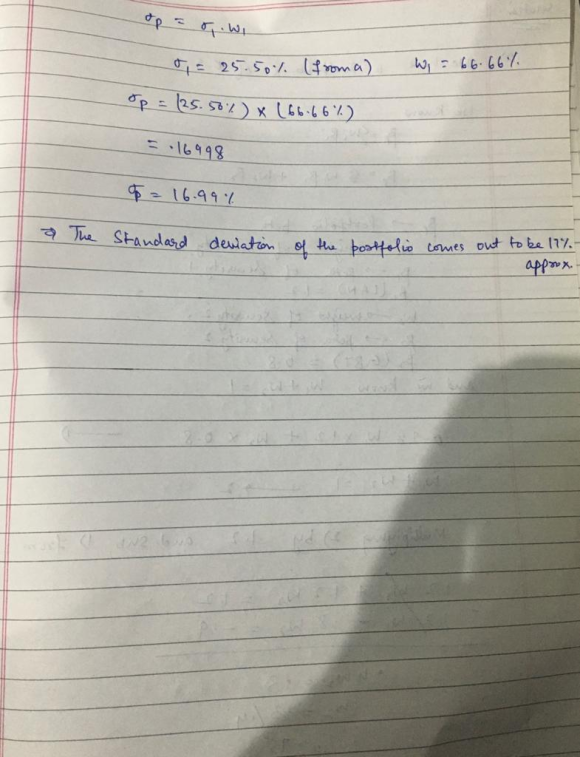 σp = σ₁.W₁
σ₁ = 25.50% (from a) W₁ = 66.66%
σp = (25.50%) × (66.66%)
= .16998
= 16.99%
⇒ The Standard deviation of the portfolio comes out to be 17%.
approx.